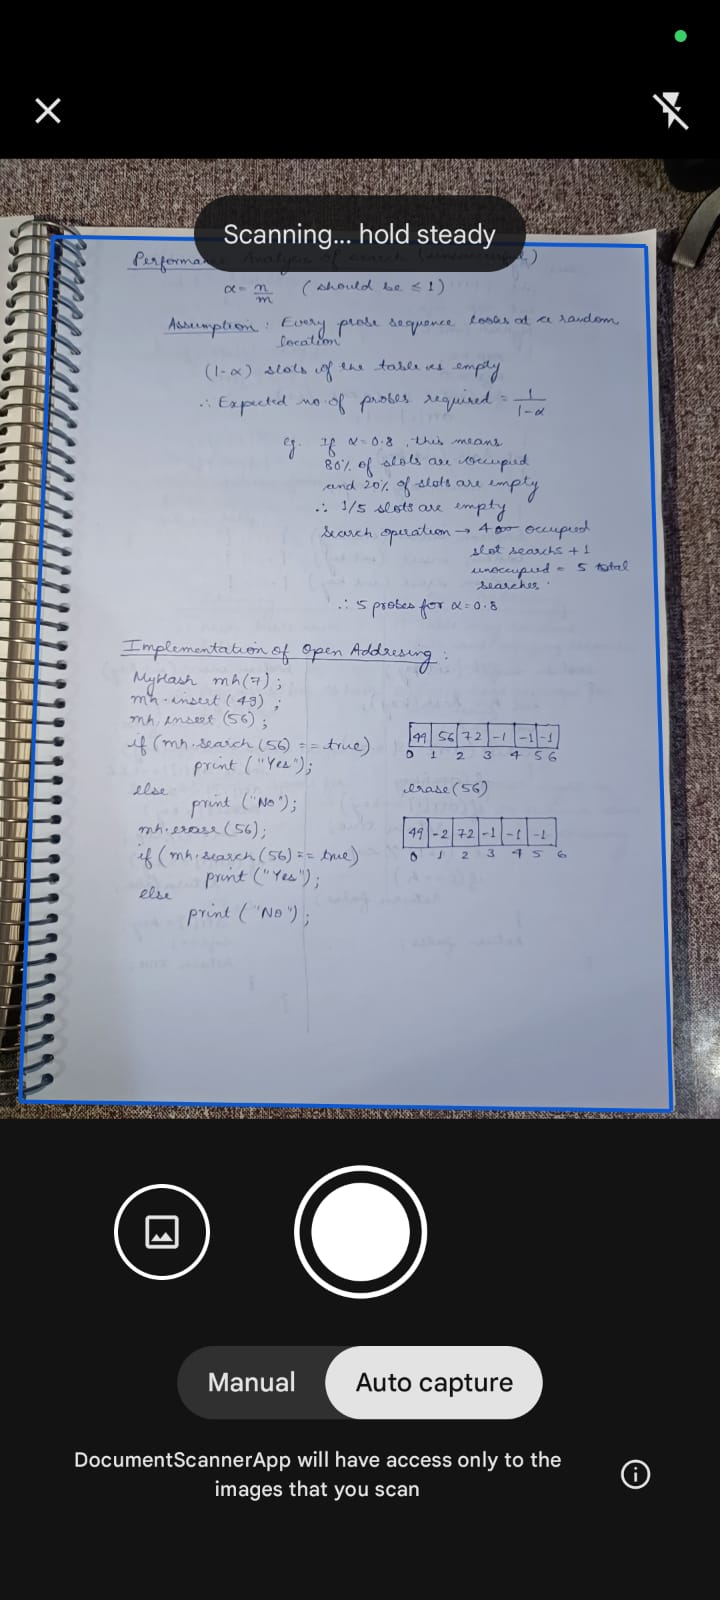 Scanning... hold steady
Performance Analysis of search (unsuccessful)
α = n/m (should be ≤ 1)
Assumption : Every probe sequence looks at a random
location
(1-α) slots of the table is empty
∴ Expected no. of probes required = 1/1-α
eg. If α = 0.8 , this means
80% of slots are occupied
and 20% of slots are empty
∴ 1/5 slots are empty
Search operation → 4 occupied
slot searchs + 1
unoccupied = 5 total
searches.
∴ 5 probes for α = 0.8
Implementation of Open Addresing :
MyHash mh(7) ;
mh.insert (49) ;
mh.insert (56) ;
if (mh.search (56) == true)
print ("Yes");
else
print ("No");
mh.erase (56);
if (mh.search (56) == true)
print ("Yes");
else
print ("No");
49 56 72 -1 -1 -1
0 1 2 3 4 5 6
erase(56)
49 -2 72 -1 -1 -1
0 1 2 3 4 5 6
Manual
Auto capture
DocumentScannerApp will have access only to the
images that you scan